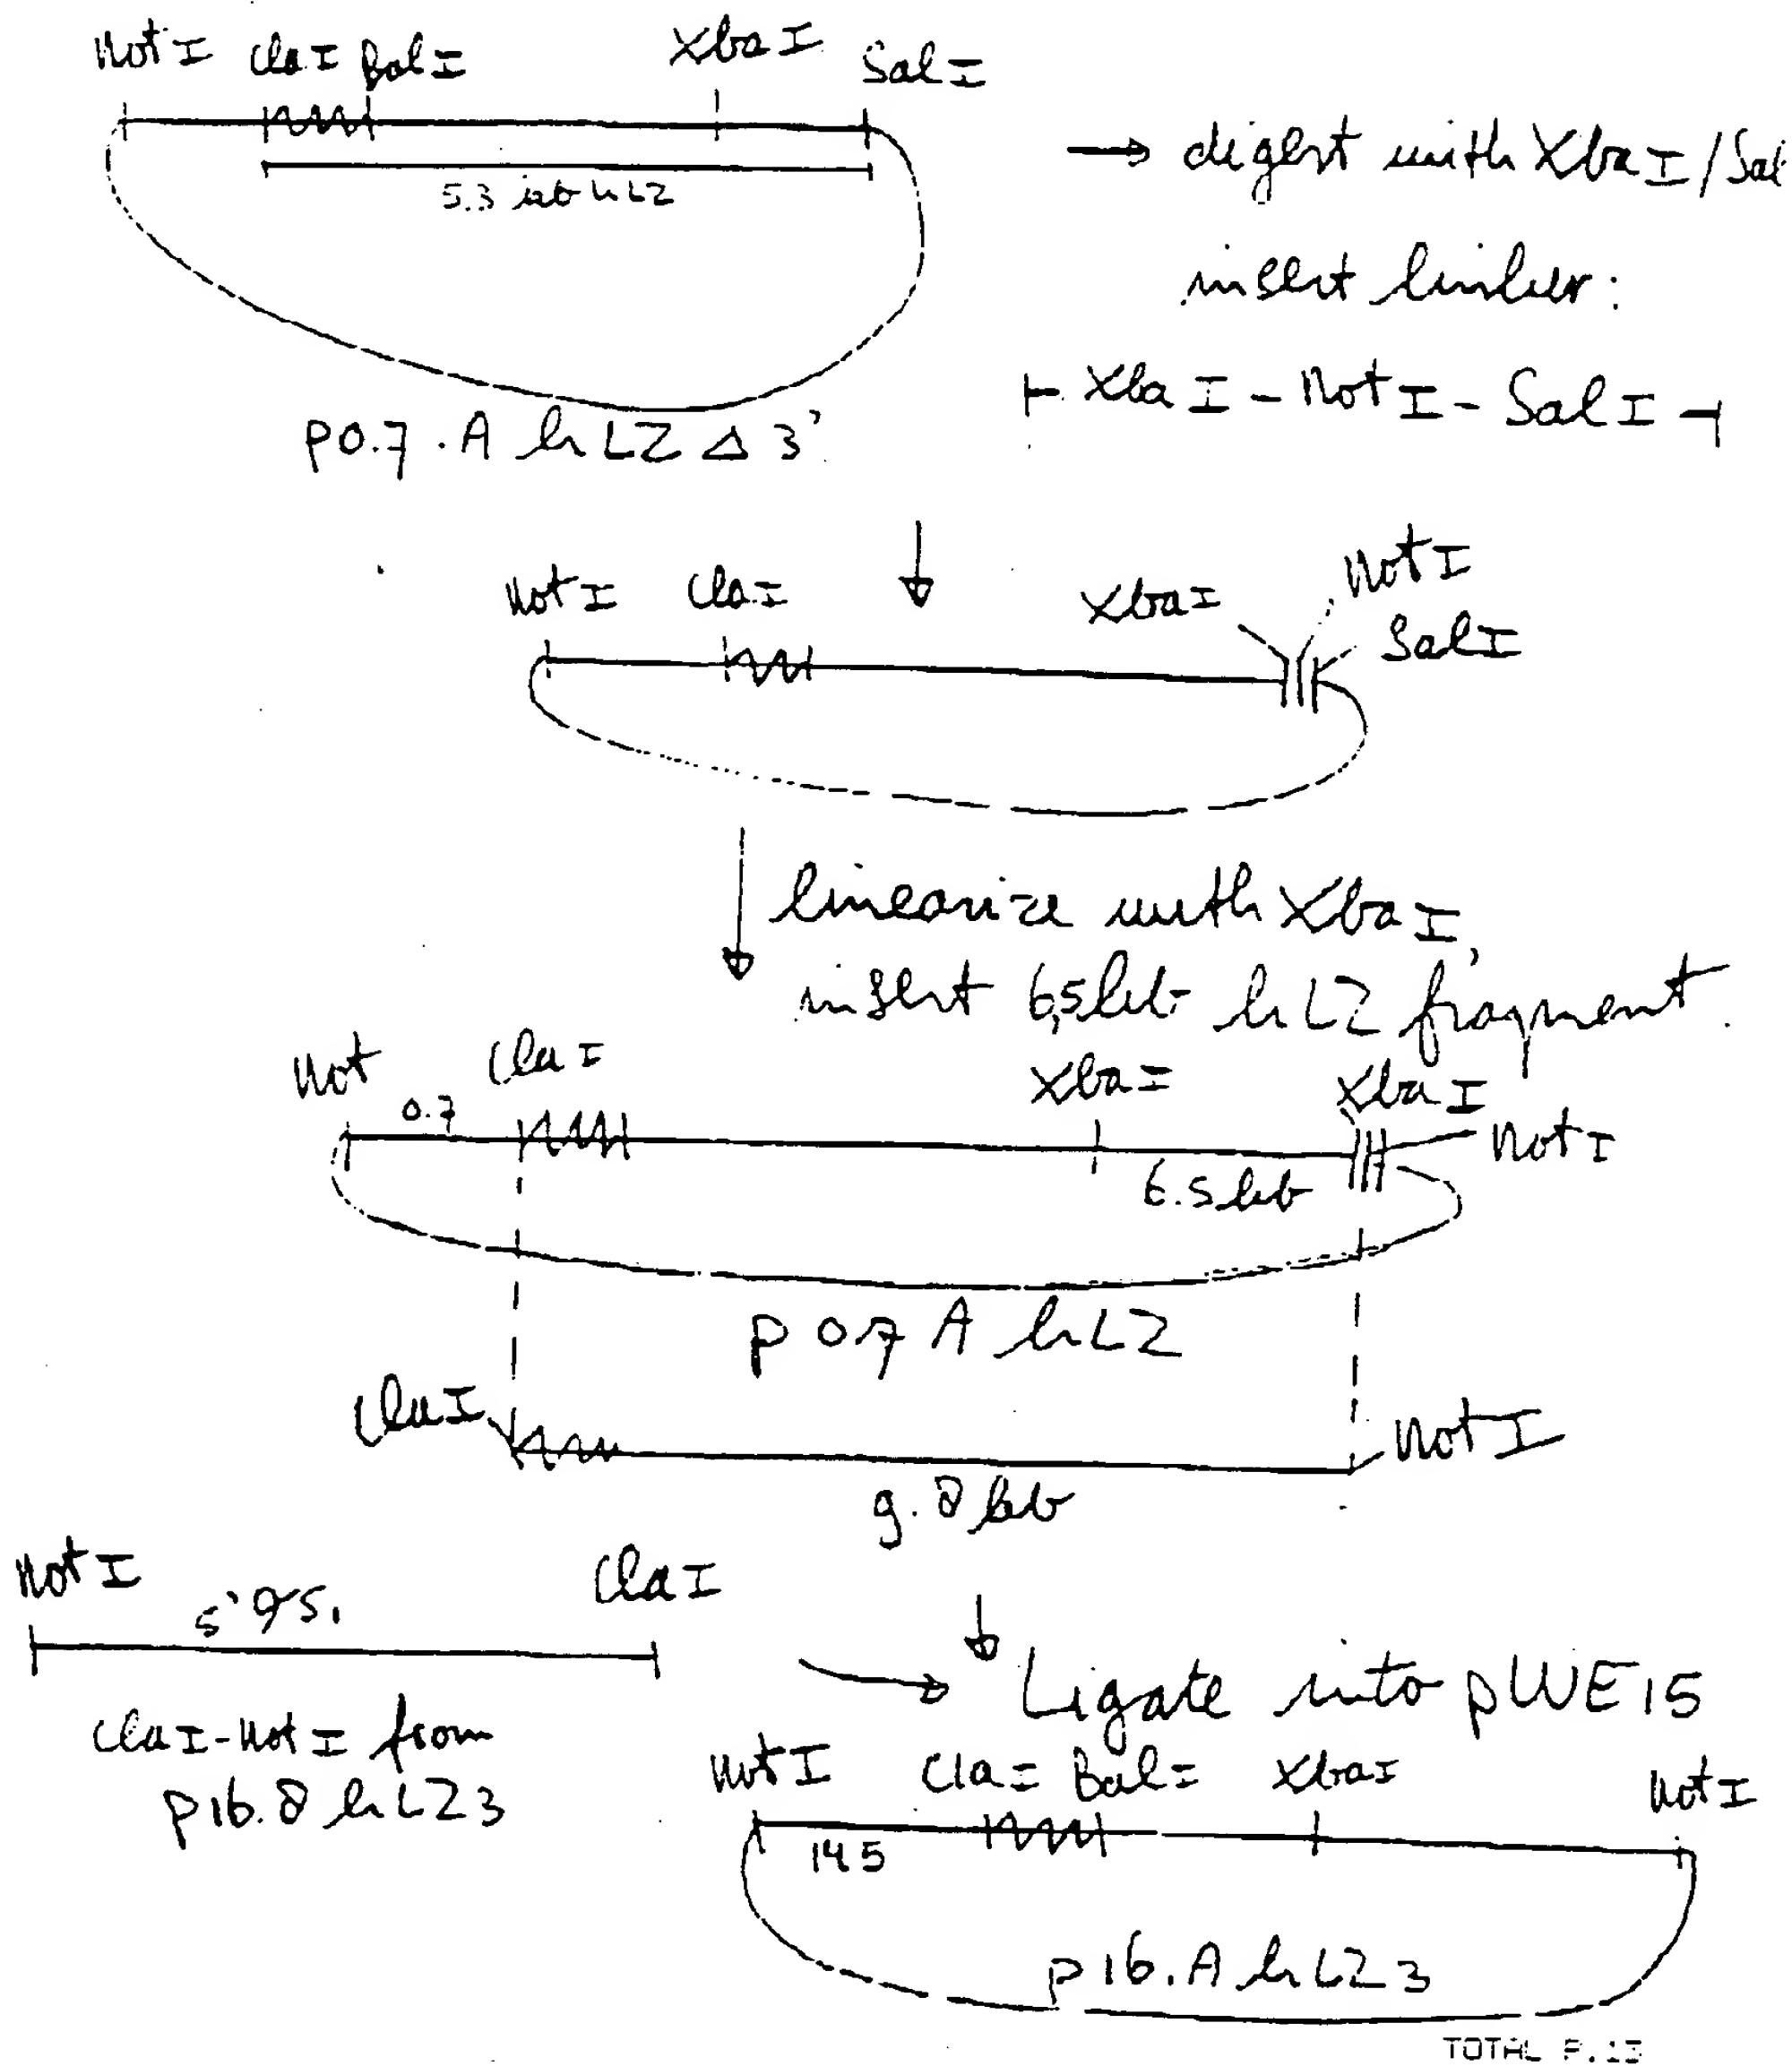 Not I ClaI Bal I XbaI Sal I
→ digest with XbaI/Sal
5.3 kb hLZ
insert linker:
⊢ Xba I - Not I - Sal I ⊣
p0.7.A hLZ Δ 3'
Not I ClaI XbaI Not I
SalI
linearize with XbaI,
insert 6,5 kb hLZ fragment.
Not ClaI XbaI XbaI
0.7 NotI
6.5 kb
p 0.7 A hLZ
ClaI NotI
9.8 kb
Not I 5' 9s, ClaI
Ligate into pWE15
ClaI-Not I from
p16.8 hLZ3
Not I Cla I Bal I XbaI Not I
14.5
p16.A hLZ3
TOTAL P.13